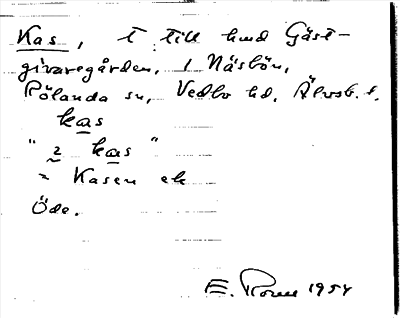 Kas, t till hmd Gäst-
givaregården, i Näsbön,
Rölanda sn, Vedbo hd, Älvsb. l.
kas
"i kas"
= Kasen ek
Öde.
E. 1954